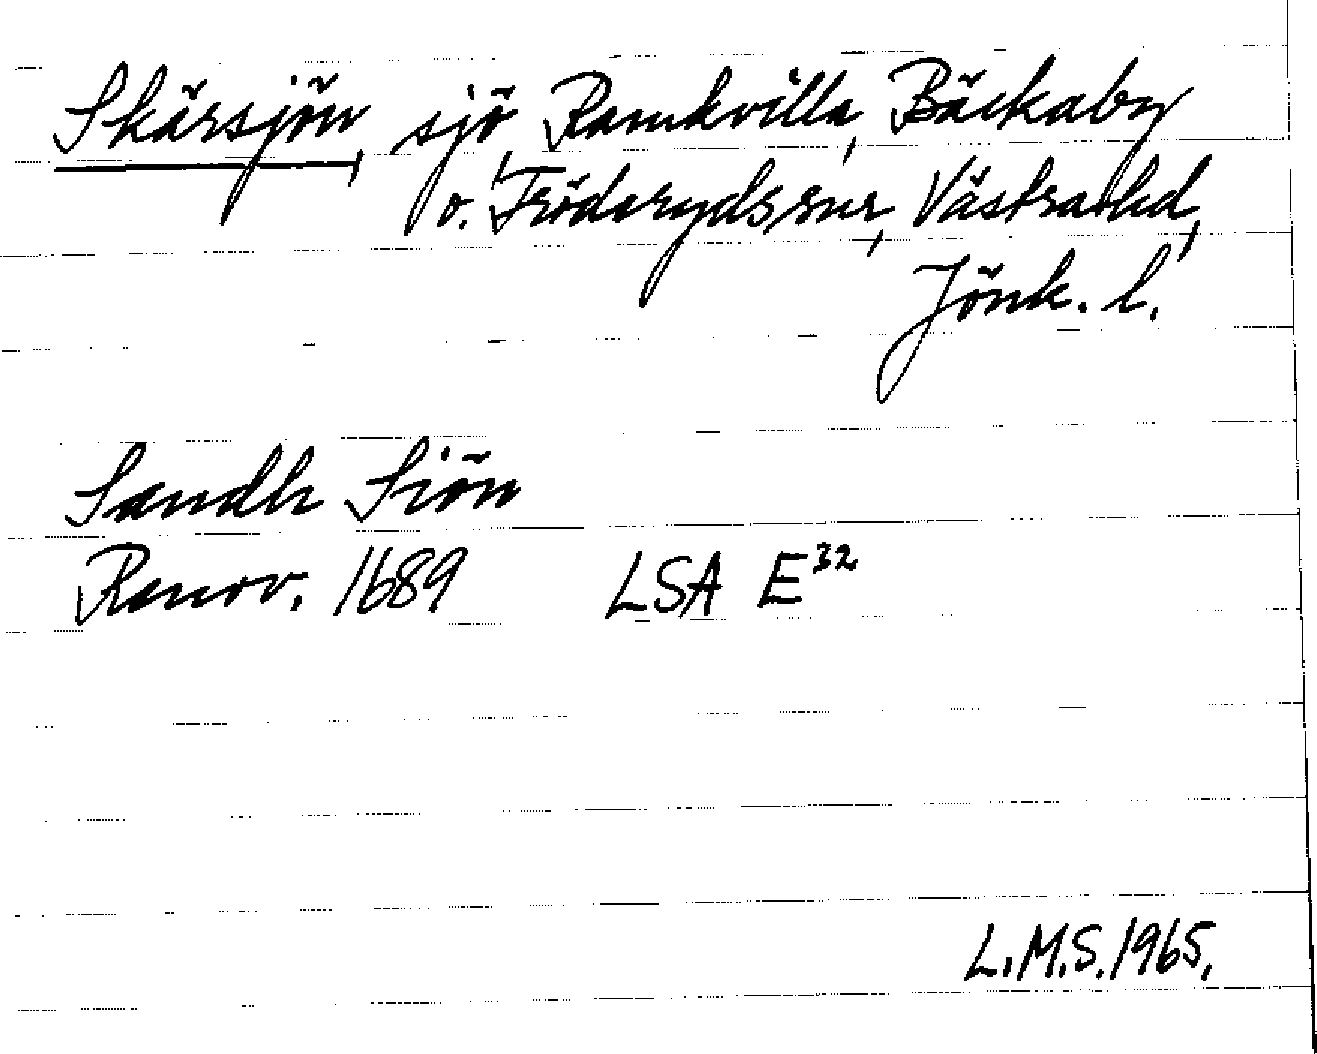 Skärsjön, sjö, Ramkvilla, Bäckaby
o. Fröderyds snr, Västra hd,
Jönk. l.
Sandh Siön
Renov. 1689 LSA E³²
L.M.S. 1965.